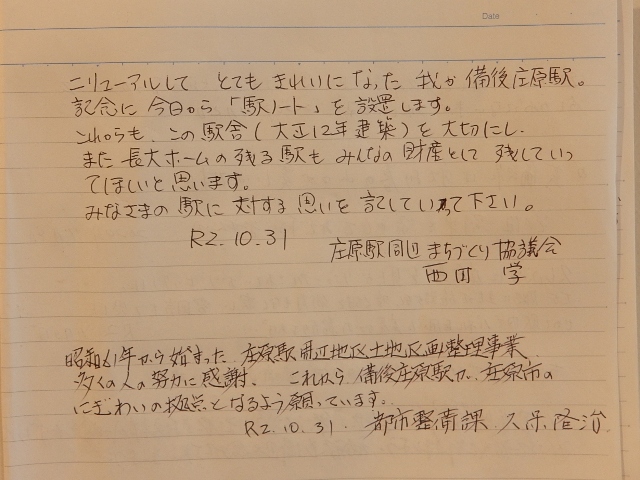 Date
リニューアルして とても きれいに なった 我が 備後庄原駅。
記念に 今日から 「駅ノート」を 設置します。
これからも、この 駅舎(大正12年建築)を 大切にし、
また 長大ホームの 残る 駅も みんなの 財産として 残していっ
てほしいと思います。
みなさまの 駅に 対する 思いを 記していって下さい。
R2.10.31
庄原駅周辺 まちづくり協議会
西田 学
昭和61年から始まった、庄原駅周辺地区土地区画整理事業
多くの人の努力に感謝、これから 備後庄原駅が、庄原市の
にぎわいの拠点となるよう願っています。
R2.10.31. 都市整備課 久保隆治